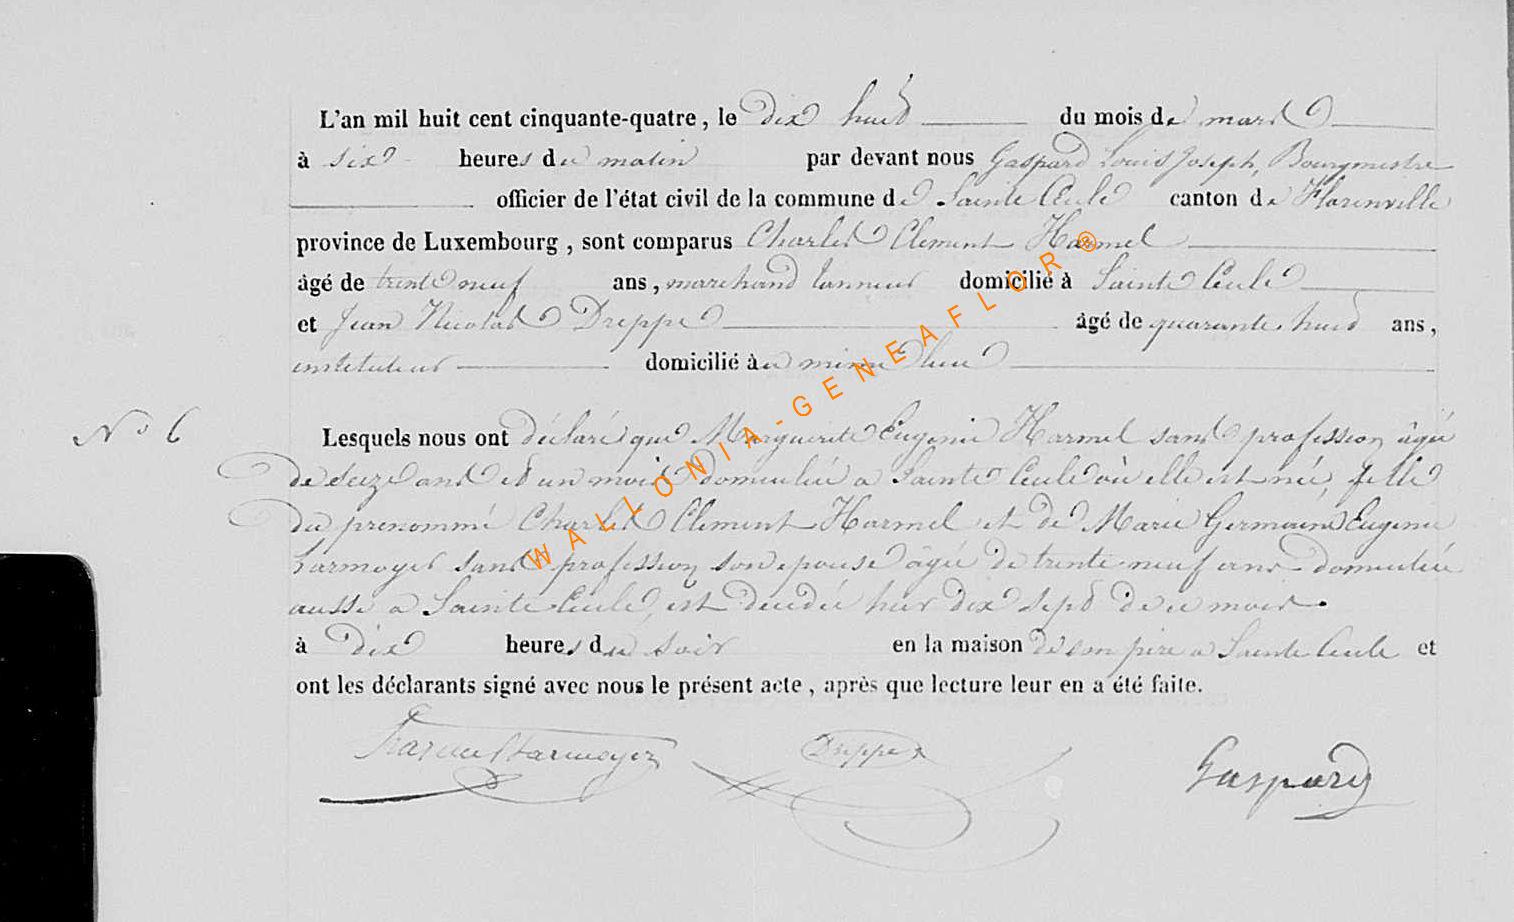 L'an mil huit cent cinquante-quatre, le dix huit du mois de mars
à six heures du matin par devant nous Gaspard Louis Joseph, Bourgmestre
officier de l'état civil de la commune de Sainte Cécile canton de Florenville
province de Luxembourg, sont comparus Charles Clement Harmel
âgé de trente neuf ans, marchand tanneur domicilié à Sainte Cécile
et Jean Nicolas Dreppe âgé de quarante huit ans,
instituteur domicilié au même lieu
N° 6
Lesquels nous ont déclaré que Marguerite Eugenie Harmel sans profession âgée
de seize ans et un mois domiciliée a Sainte Cécile où elle est née, fille
du prenommé Charles Clement Harmel et de Marie Germaine Eugenie
Larmoyer sans profession son epouse âgée de trente neuf ans domiciliée
aussi a Sainte Cécile, est decedée hier dix sept de ce mois.
à dix heures du soir en la maison de son père a Sainte Cecile et
ont les déclarants signé avec nous le présent acte, après que lecture leur en a été faite.
Dreppe Gaspard
WALLONIA-GENEAFLOR®